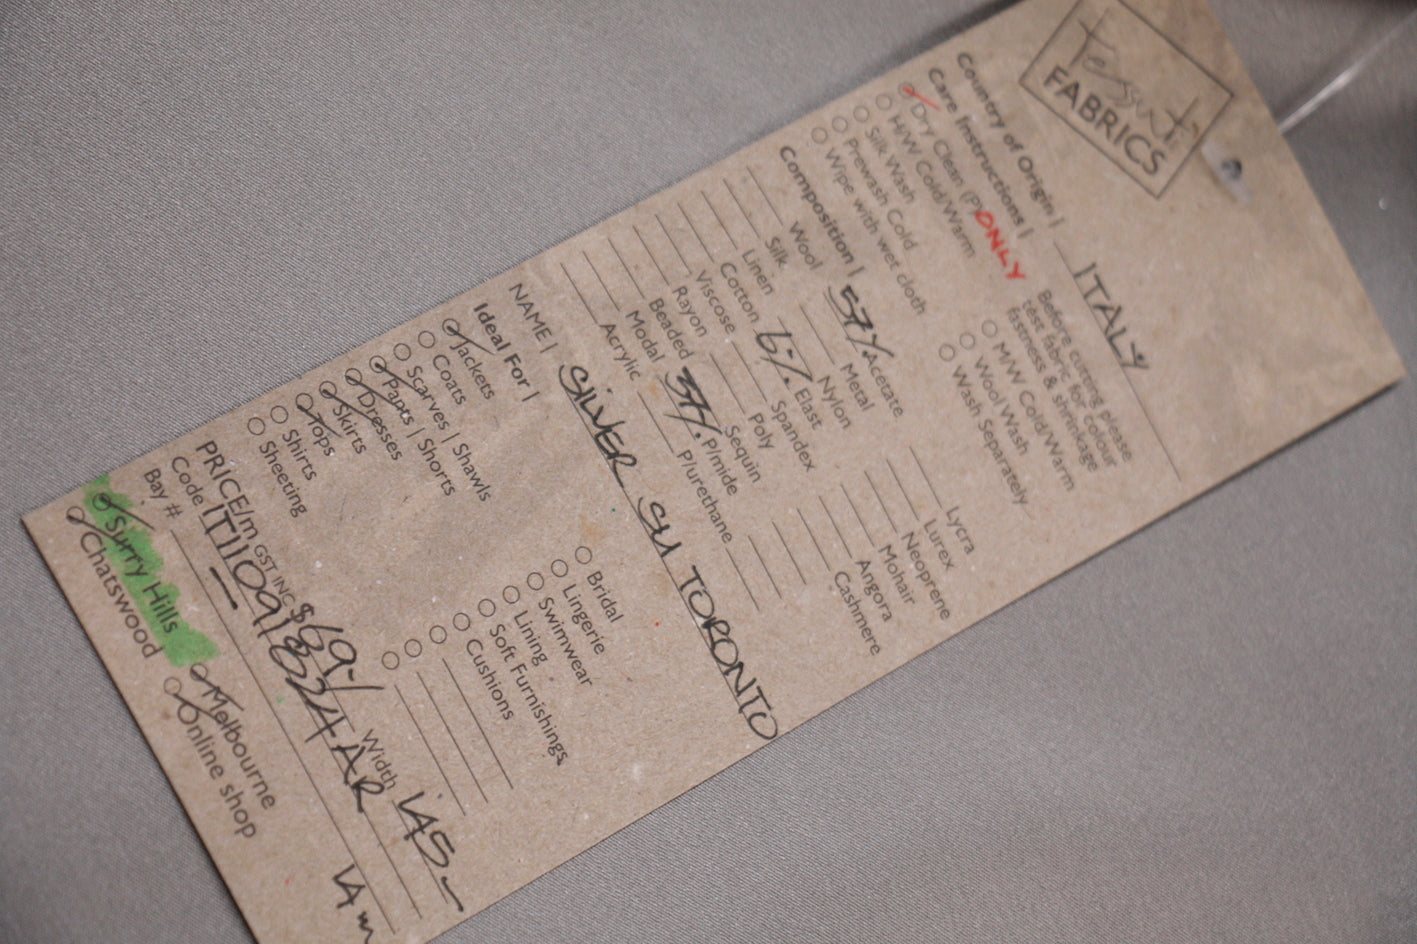 Tessuti
FABRICS
Country of Origin | ITALY
Care Instructions |
Dry Clean (P) ONLY
H/W Cold/Warm
Silk Wash
Prewash Cold
Wipe with wet cloth
Before cutting please
test fabric for colour
fastness & shrinkage
M/W Cold/Warm
Wool Wash
Wash Separately
Composition |
Wool 57% Acetate Lycra
Silk Metal Lurex
Linen Nylon Neoprene
Cotton 6% Elast Mohair
Viscose Spandex Angora
Rayon Poly Cashmere
Beaded Sequin
Modal 37% P/mide
Acrylic P/urethane
NAME | SILVER SU TORONTO
Ideal For |
Jackets Bridal
Coats Lingerie
Scarves | Shawls Swimwear
Pants | Shorts Lining
Dresses Soft Furnishings
Skirts Cushions
Tops
Shirts
Sheeting
PRICE/m GST INC $69-/ Width 145-
Code IT1109/8324 AR
Bay # 14m
Surry Hills Melbourne
Chatswood Online shop